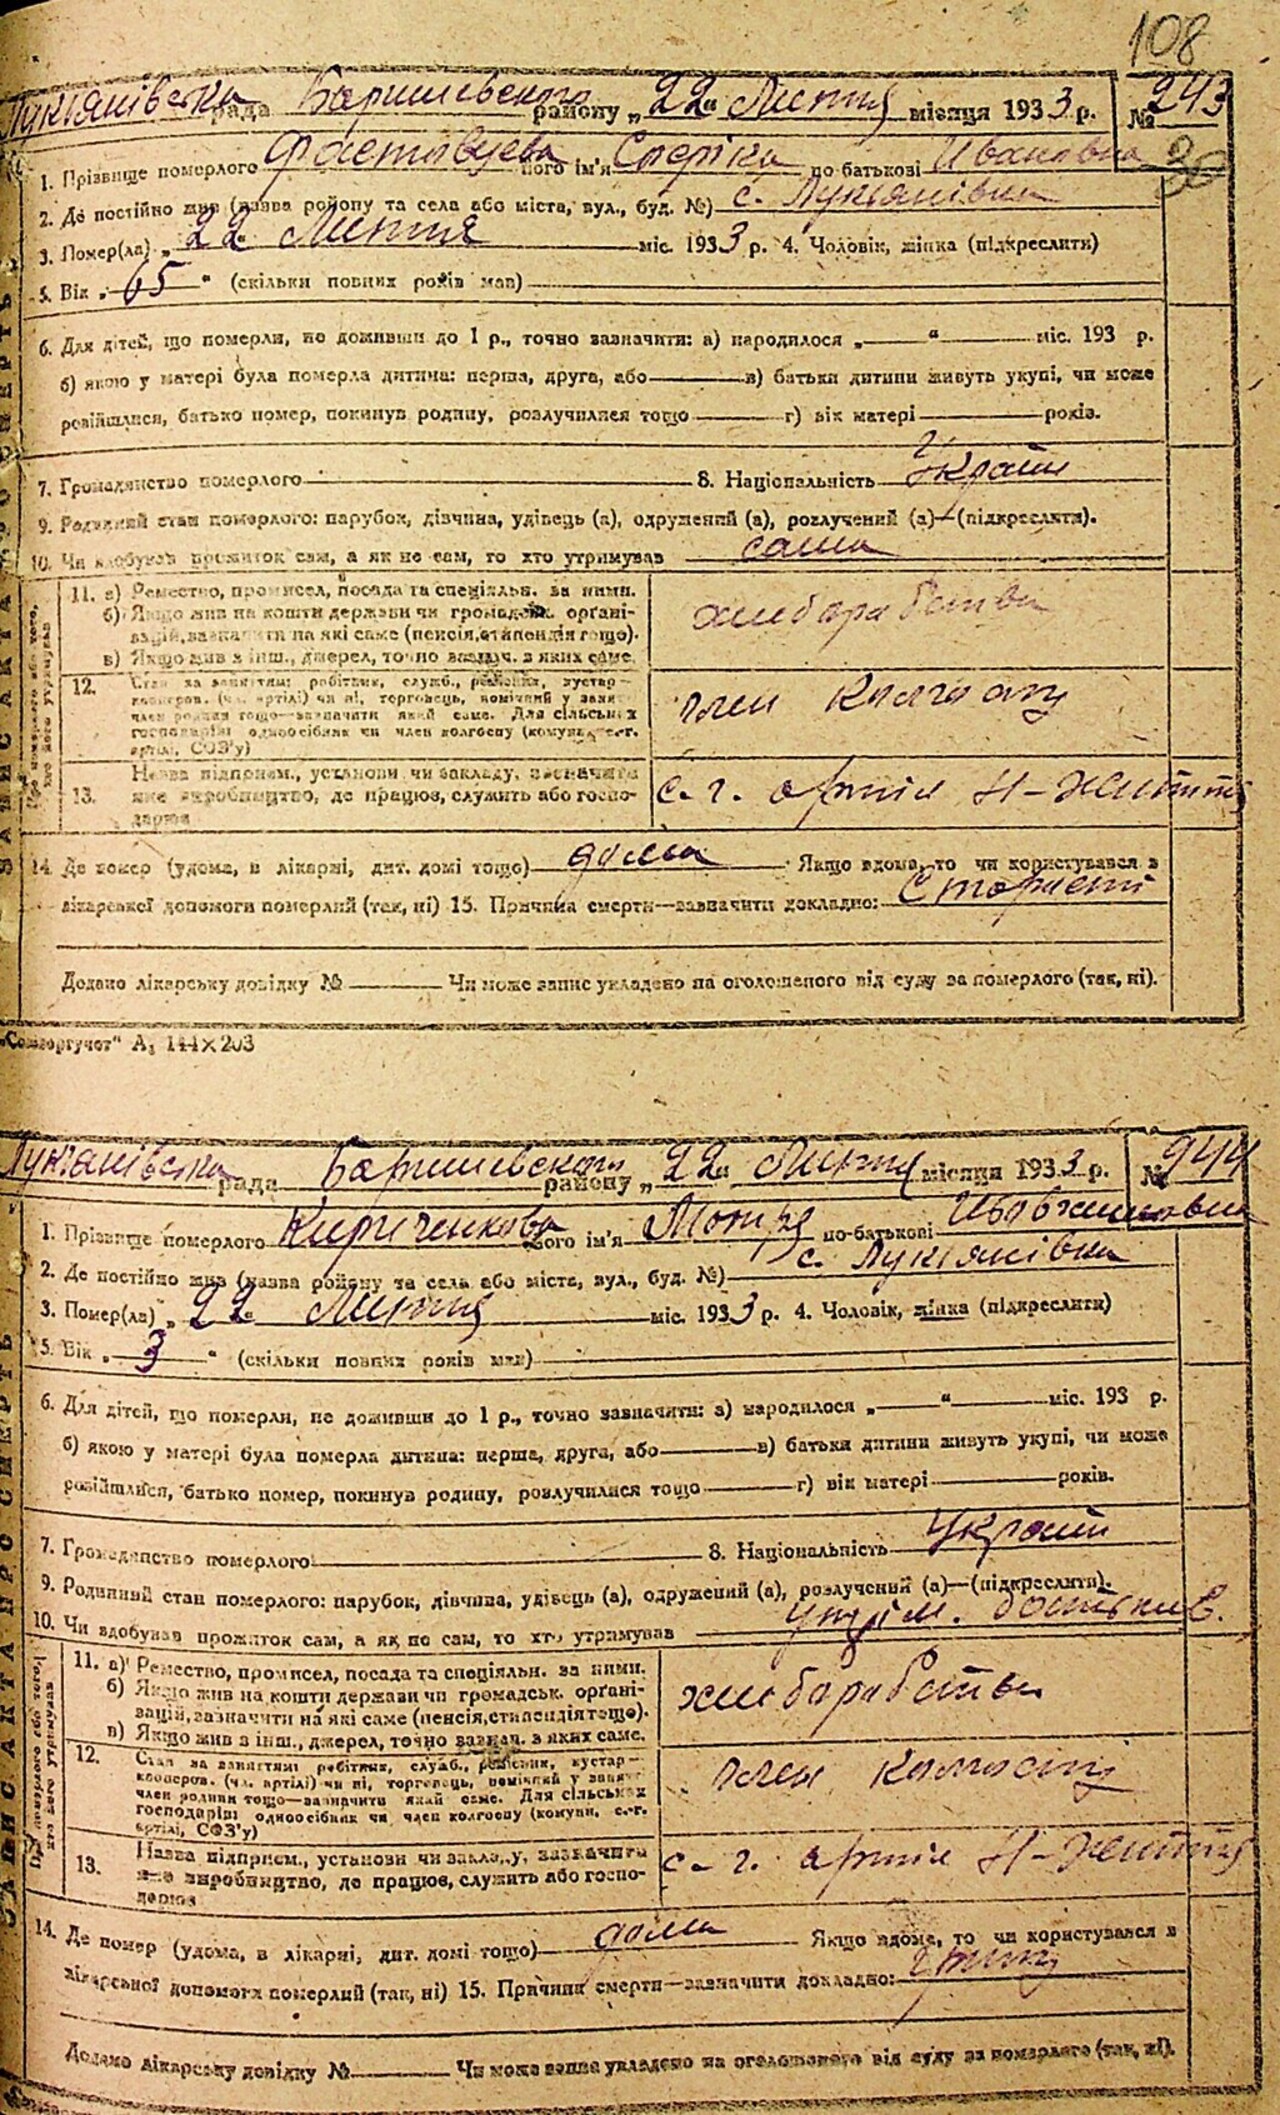 108
Лукянівська рада Баришевського району „22" Липня місяця 1933 р. № 243
1. Прізвище померлого Фастовцева його ім'я по-батькові Ивановна
2. Де постійно жив (назва району та села або міста, вул., буд. №) с. Лукянівка
3. Помер(ла) „22" Липня міс. 1933 р. 4. Чоловік, жінка (підкреслити)
5. Вік „65" (скільки повних років мав)
6. Для дітей, що померли, не доживши до 1 р., точно зазначити: а) народилося „ " міс. 193 р.
б) якою у матері була померла дитина: перша, друга, або в) батьки дитини живуть укупі, чи може
розійшлися, батько помер, покинув родину, розлучилися тощо г) вік матері років.
7. Громадянство померлого 8. Національність Україн
9. Родинний стан померлого: парубок, дівчина, удівець (а), одружений (а), розлучений (а)—(підкреслити).
10. Чи здобував прожиток сам, а як не сам, то хто утримував сама
11. а) Ремество, промисел, посада та спеціяльн. за ними.
б) Якщо жив на кошти держави чи громадськ. органі-
зацій, зазначити на які саме (пенсія, стипендія тощо).
в) Якщо жив з інш., джерел, точно зазнач. з яких саме.
хлиборабство
12. Стан за заняттям: робітник, служб., ремісник, кустар—
кооперов. (чл. артілі) чи ні, торговець, помічний у занят.
член родини тощо—зазначити який саме. Для сільських
господарів: одноосібник чи член колгоспу (комуни, с.-г.
артілі, СОЗ'у)
член колгоспу
13. Назва підприєм., установи чи закладу, зазначити
яке виробництво, де працює, служить або госпо-
дарює
с. г. артіль Н-життя
14. Де помер (удома, в лікарні, дит. домі тощо) дома Якщо вдома, то чи користувався з
лікарської допомоги померлий (так, ні) 15. Причина смерти—зазначити докладно: Старисть
Додано лікарську довідку № Чи може запис укладено на оголошеного від суду за померлого (так, ні).
"Союзоргучет" А₅ 144×203
Лукянівська рада Баришевського району „22" Липня місяця 1933 р. № 244
1. Прізвище померлого Кириченкова його ім'я Мотря по-батькові
2. Де постійно жив (назва району та села або міста, вул., буд. №) с. Лукянівка
3. Помер(ла) „22" Липня міс. 1933 р. 4. Чоловік, жінка (підкреслити)
5. Вік „3" (скільки повних років мав)
6. Для дітей, що померли, не доживши до 1 р., точно зазначити: а) народилося „ " міс. 193 р.
б) якою у матері була померла дитина: перша, друга, або в) батьки дитини живуть укупі, чи може
розійшлися, батько помер, покинув родину, розлучилися тощо г) вік матері років.
7. Громадянство померлого 8. Національність Україн
9. Родинний стан померлого: парубок, дівчина, удівець (а), одружений (а), розлучений (а)—(підкреслити).
10. Чи здобував прожиток сам, а як не сам, то хто утримував утрим. батьків.
11. а) Ремество, промисел, посада та спеціяльн. за ними.
б) Якщо жив на кошти держави чи громадськ. органі-
зацій, зазначити на які саме (пенсія, стипендія тощо).
в) Якщо жив з інш., джерел, точно зазнач. з яких саме.
хлиборабство
12. Стан за заняттям: робітник, служб., ремісник, кустар—
кооперов. (чл. артілі) чи ні, торговець, помічний у занят.
член родини тощо—зазначити який саме. Для сільських
господарів: одноосібник чи член колгоспу (комуни, с.-г.
артілі, СОЗ'у)
член колгоспу
13. Назва підприєм., установи чи закладу, зазначити
яке виробництво, де працює, служить або госпо-
дарює
с. г. артіль Н-життя
14. Де помер (удома, в лікарні, дит. домі тощо) дома Якщо вдома, то чи користувався з
лікарської допомоги померлий (так, ні) 15. Причина смерти—зазначити докладно:
Додано лікарську довідку № Чи може запис укладено на оголошеного від суду за померлого (так, ні).
ЗАПИС АКТА ПРО СМЕРТЬ